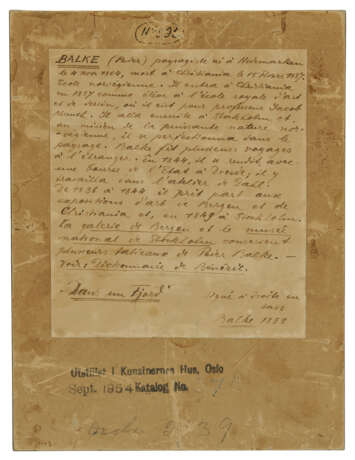 No 32
BALKE (Peder) paysagiste né à Hedmarken
le 4 nov 1804, mort à Christiania le 15 Mars 1887.
école norvégienne. Il entra à Christiania
en 1827 comme élève à l'école royale d'art
et de dessin, où il eut pour professeur Jacob
Munch. Il alla ensuite à Stockholm et,
au milieu de la puissante nature nor-
végienne, il se perfectionna dans le
paysage. Balke fit plusieurs voyages
à l'étranger. En 1844, il se rendit avec
une bourse de l'Etat à Dresde, il y
travailla dans l'atelier de Dahl.
De 1836 à 1844 il prit part aux
expositions d'art de Bergen et de
Christiania et, en 1849 à Stockholm.
La galerie de Bergen et le musée
national de Stockholm conservent
plusieurs tableaux de Peder Balke. —
Voir: Dictionnaire de Bénézit.
"Dans un Fjord"
signé à droite en
bas
Balke
Utstillet i Kunstnernes Hus, Oslo
Sept. 1954 Katalog No.